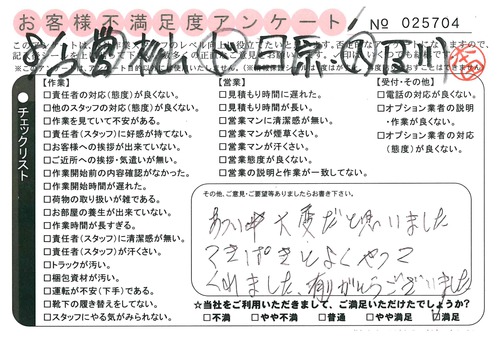 お客様不満足度アンケート
No 025704
【作業】
□責任者の対応(態度)が良くない。
□他のスタッフの対応(態度)が良くない。
□作業を見ていて不安がある。
□責任者(スタッフ)に好感が持てない。
□お客様への挨拶が出来ていない。
□ご近所への挨拶・気遣いが無い。
□作業開始前の内容確認がなかった。
□作業開始時間が遅れた。
□荷物の取り扱いが雑である。
□お部屋の養生が出来ていない。
□作業時間が長すぎる。
□責任者(スタッフ)に清潔感が無い。
□責任者(スタッフ)が汗くさい。
□トラックが汚い。
□梱包資材が汚い。
□運転が不安(下手)である。
□靴下の履き替えをしてない。
□スタッフにやる気がみられない。
【営業】
□見積もり時間に遅れた。
□見積もり時間が長い。
□営業マンに清潔感が無い。
□営業マンが煙草くさい。
□営業マンが汗くさい。
□営業態度が良くない。
□営業の説明と作業が一致してない。
【受付・その他】
□電話の対応が良くない。
□オプション業者の説明
・作業が良くない。
□オプション業者の対応
(態度)が良くない。
チェックリスト
その他、ご意見・ご要望等ありましたらお書き下さい。
あつい中大変だと思いました
てきぱきとよくやって
くれました、有りがとうございました
☆当社をご利用いただきまして、ご満足いただけたでしょうか?
□不満 □やや不満 □普通 □やや満足 ☑満足